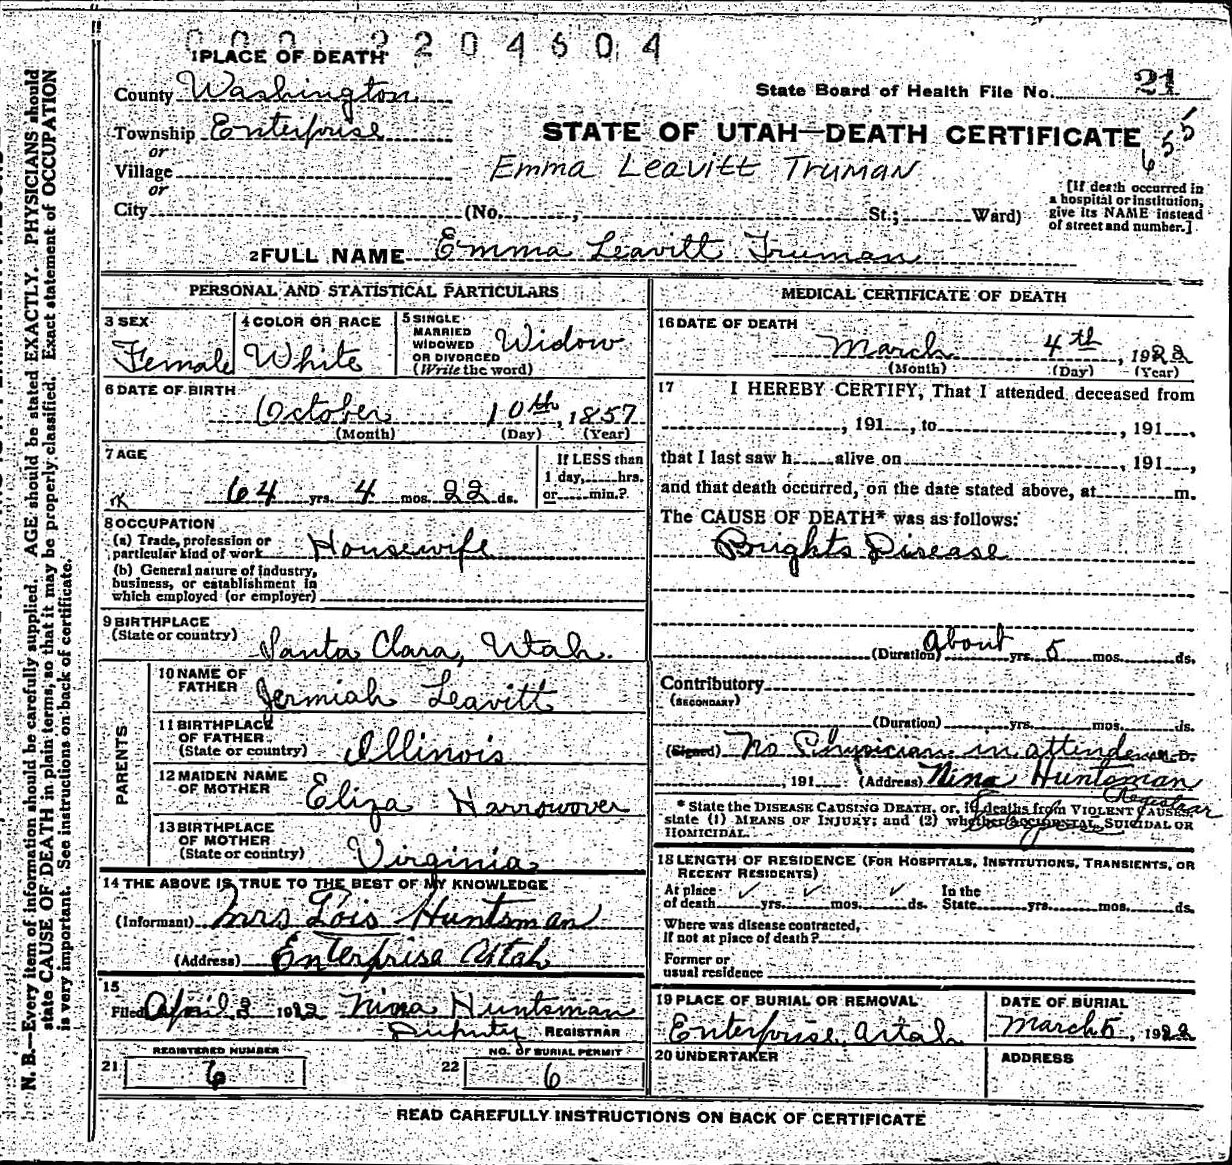 0002204604
1PLACE OF DEATH
County Washington
State Board of Health File No. 21
Township Enterprise
STATE OF UTAH—DEATH CERTIFICATE
655
or
Village
Emma Leavitt Truman
or
City (No. , St.; Ward)
[If death occurred in
a hospital or institution,
give its NAME instead
of street and number.]
2FULL NAME Emma Leavitt Truman
PERSONAL AND STATISTICAL PARTICULARS
3 SEX
Female
4 COLOR OR RACE
White
5 SINGLE
MARRIED
WIDOWED
OR DIVORCED
(Write the word)
Widow
6 DATE OF BIRTH
October 10th, 1857
(Month) (Day) (Year)
7 AGE
64 yrs. 4 mos. 22 ds.
If LESS than
1 day, hrs.
or min.?
8 OCCUPATION
(a) Trade, profession or
particular kind of work Housewife
(b) General nature of industry,
business, or establishment in
which employed (or employer)
9 BIRTHPLACE
(State or country) Santa Clara, Utah.
PARENTS
10 NAME OF
FATHER Jermiah Leavitt
11 BIRTHPLACE
OF FATHER
(State or country) Illinois
12 MAIDEN NAME
OF MOTHER Eliza Harrowover
13 BIRTHPLACE
OF MOTHER
(State or country) Virginia
14 THE ABOVE IS TRUE TO THE BEST OF MY KNOWLEDGE
(Informant) Mrs Lois Huntsman
(Address) Enterprise Utah
15
Filed April 3 1922 Nina Huntsman
Deputy REGISTRAR
REGISTERED NUMBER
21 6
NO. OF BURIAL PERMIT
22 6
MEDICAL CERTIFICATE OF DEATH
16 DATE OF DEATH
March 4th, 1922
(Month) (Day) (Year)
17 I HEREBY CERTIFY, That I attended deceased from
, 191 , to , 191 ,
that I last saw h alive on , 191 ,
and that death occurred, on the date stated above, at m.
The CAUSE OF DEATH* was as follows:
Brights Disease
(Duration) About yrs. 5 mos. ds.
Contributory
(SECONDARY)
(Duration) yrs. mos. ds.
(Signed) No Physician in attendence D.
, 191 (Address) Nina Huntsman
Registrar
* State the DISEASE CAUSING DEATH, or, if deaths from VIOLENT CAUSES,
state (1) MEANS OF INJURY; and (2) whether ACCIDENTAL, SUICIDAL OR
HOMICIDAL.
18 LENGTH OF RESIDENCE (FOR HOSPITALS, INSTITUTIONS, TRANSIENTS, OR
RECENT RESIDENTS)
At place
of death yrs. mos. ds.
In the
State yrs. mos. ds.
Where was disease contracted,
if not at place of death?
Former or
usual residence
19 PLACE OF BURIAL OR REMOVAL
Enterprise, Utah
DATE OF BURIAL
March 5, 1922
20 UNDERTAKER
ADDRESS
READ CAREFULLY INSTRUCTIONS ON BACK OF CERTIFICATE
N. B.—Every item of information should be carefully supplied. AGE should be stated EXACTLY. PHYSICIANS should
state CAUSE OF DEATH in plain terms, so that it may be properly classified. Exact statement of OCCUPATION
is very important. See instructions on back of certificate.